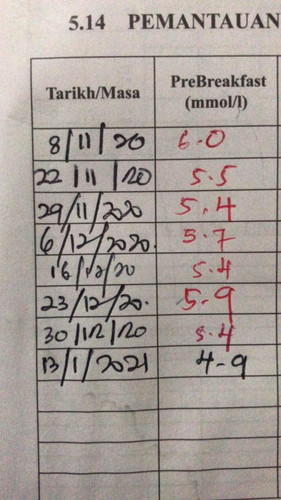 5.14 PEMANTAUAN
Tarikh/Masa PreBreakfast
(mmol/l)
8/11/20 6.0
22/11/20 5.5
29/11/2020 5.4
6/12/2020. 5.7
16/12/20 5.4
23/12/20. 5.9
30/12/20 5.4
13/1/2021 4-9